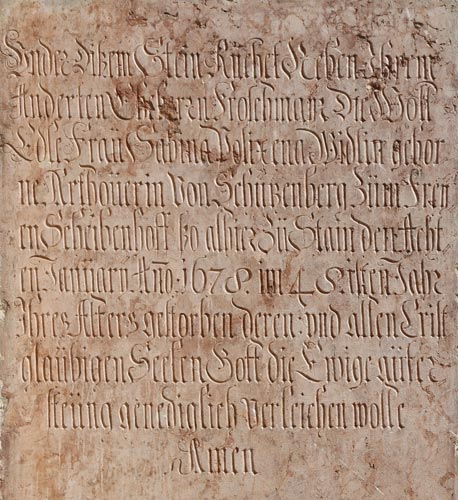 Under disem Stein Ruehet Neben Ihrem
Anderten Eheheren Froschmair Die Woll
Edle Frau Sabina Polixena Widlin gebor
ne Kerhoüerin Von Schurzenberg Züm Frey
en Scheibenhoff so alhier Zü Stain den Acht
en January Año: 1678 im 48 sten Jahr
Ihres Alters gestorben deren: und allen Crist
glaübigen Seelen Gott die Ewige aüfer-
steüng genediglich Verleichen wolle
Amen